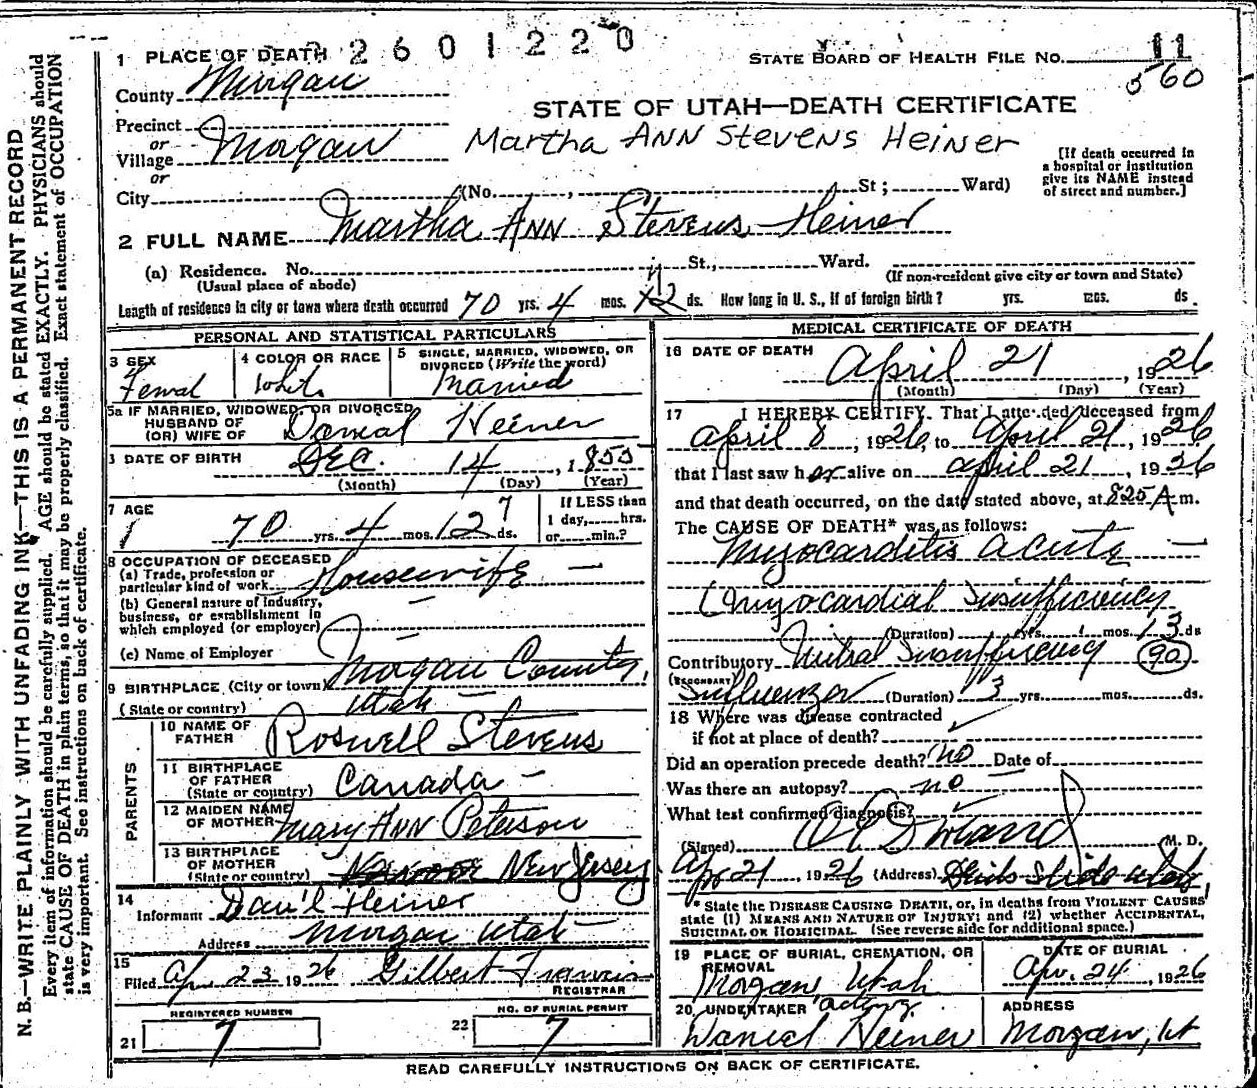 2 6 0 1 2 2 0
1 PLACE OF DEATH
STATE BOARD OF HEALTH FILE NO. 11
560
County Morgan
STATE OF UTAH—DEATH CERTIFICATE
Precinct
or
Village Morgan
Martha ANN Stevens Heiner
or
City (No. , St; Ward)
[If death occurred in
a hospital or institution
give its NAME instead
of street and number.]
2 FULL NAME Martha ANN Stevens Heiner
(a) Residence. No. St., Ward.
(Usual place of abode)
(If non-resident give city or town and State)
Length of residence in city or town where death occurred 70 yrs. 4 mos. ds. How long in U. S., if of foreign birth? yrs. mos. ds.
PERSONAL AND STATISTICAL PARTICULARS
3 SEX
Femal
4 COLOR OR RACE
White
5 SINGLE, MARRIED, WIDOWED, OR
DIVORCED (Write the word)
Married
5a IF MARRIED, WIDOWED, OR DIVORCED
HUSBAND OF
(OR) WIFE OF Danial Heiner
DATE OF BIRTH DEC. 14, 1855
(Month) (Day) (Year)
7 AGE
70 yrs. 4 mos. 7 ds.
If LESS than
1 day, hrs.
or min.?
8 OCCUPATION OF DECEASED
(a) Trade, profession or
particular kind of work Housewife —
(b) General nature of industry,
business, or establishment in
which employed (or employer) —
(c) Name of Employer —
9 BIRTHPLACE (City or town) Morgan County,
(State or country) Utah —
PARENTS
10 NAME OF
FATHER Roswell Stevens
11 BIRTHPLACE
OF FATHER
(State or country) Canada —
12 MAIDEN NAME
OF MOTHER Mary ANN Peterson
13 BIRTHPLACE
OF MOTHER
(State or country) New Jersey
14
Informant Dan'l Heiner
Address Morgan Utah
15
Filed Apr 23 1926 Gilbert Francis
REGISTRAR
REGISTERED NUMBER
21 7
NO. OF BURIAL PERMIT
22 7
MEDICAL CERTIFICATE OF DEATH
16 DATE OF DEATH
April 21, 1926
(Month) (Day) (Year)
17 I HEREBY CERTIFY. That I attended deceased from
April 8, 1926, to April 21, 1926
that I last saw her alive on April 21, 1926
and that death occurred, on the date stated above, at 825 A m.
The CAUSE OF DEATH* was as follows:
Myocarditis acute —
(Myocardial Insufficiency
(Duration) yrs. mos. 13 ds
Contributory Mitral Insufficiency (90)
(SECONDARY)
Influenza (Duration) 3 yrs. mos. ds.
18 Where was disease contracted
if not at place of death?
Did an operation precede death? no Date of
Was there an autopsy? no
What test confirmed diagnosis?
(Signed) M. D.
Apr 21, 1926 (Address) Devils Slide Utah
* State the DISEASE CAUSING DEATH, or, in deaths from VIOLENT CAUSES
state (1) MEANS AND NATURE OF INJURY; and (2) whether ACCIDENTAL,
SUICIDAL OR HOMICIDAL. (See reverse side for additional space.)
19 PLACE OF BURIAL, CREMATION, OR
REMOVAL
Morgan, Utah
DATE OF BURIAL
Apr. 24, 1926
20 UNDERTAKER acting
Daniel Heiner
ADDRESS
Morgan, Ut
READ CAREFULLY INSTRUCTIONS ON BACK OF CERTIFICATE.
N. B.—WRITE PLAINLY WITH UNFADING INK—THIS IS A PERMANENT RECORD
Every item of information should be carefully supplied. AGE should be stated EXACTLY. PHYSICIANS should
state CAUSE OF DEATH in plain terms, so that it may be properly classified. Exact statement of OCCUPATION
is very important. See instructions on back of certificate.